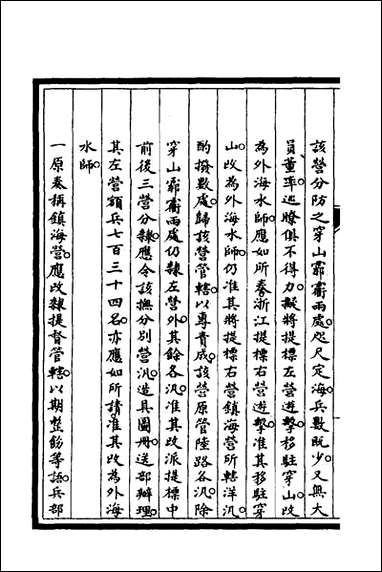 該營分防之穿山霩𩅦兩處。咫尺定海。兵數既少。又無大
員董率。巡瞭俱不得力。擬將提標左營遊擊。移駐穿山。改
為外海水師。應如所奏。浙江提標右營遊擊。准其移駐穿
山。改為外海水師。仍准其將提標右營鎮海營所轄洋汛。
酌撥數處。歸該營管轄。以專責成。該營原管陸路各汛。除
穿山霩𩅦兩處。仍隸左營外。其餘各汛。准其改派提標中
前後三營分隸。應令該撫分別營汛。造具圖冊。送部辦理。
其左營額兵七百三十四名。亦應如所請。准其改為外海
水師。
一原奏稱鎮海營。應改隸提督管轄。以期整飭等語。兵部